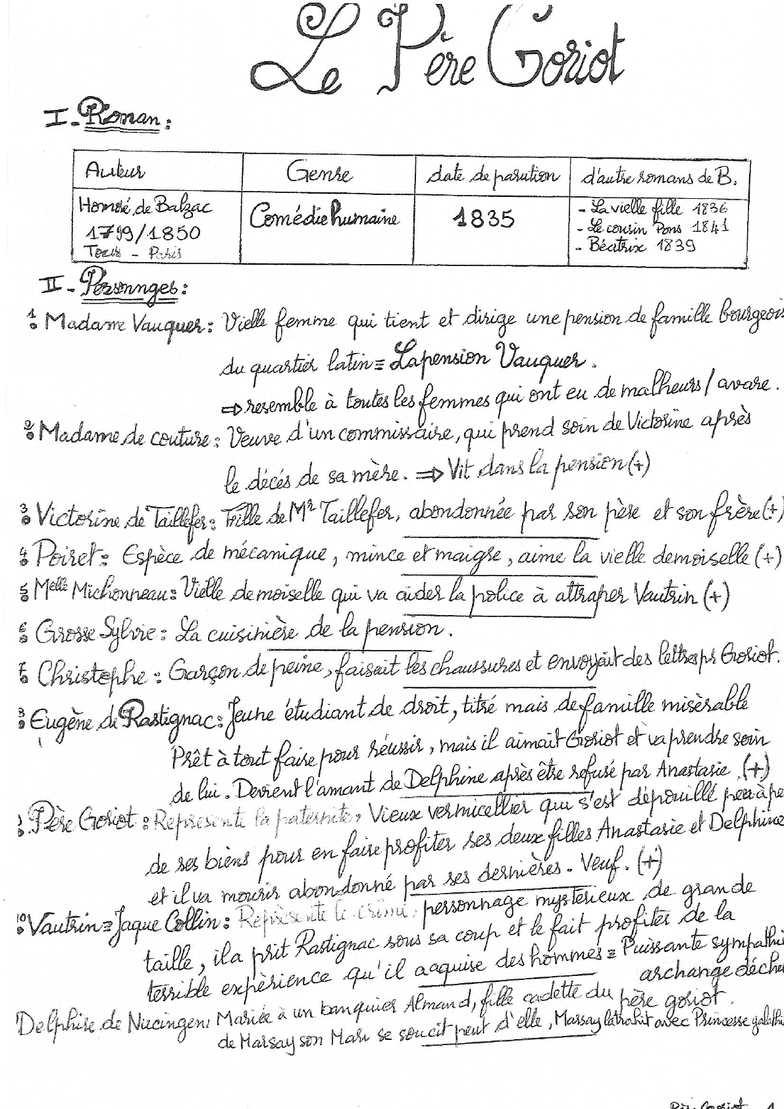 Le Père Goriot
I - Roman :
Auteur
Genre
date de parution
d'autre romans de B.
Honoré de Balzac
1799/1850
Tours - Paris
Comédie humaine
1835
- La vielle fille 1836
- Le cousin Pons 1841
- Béatrix 1839
II - Personnges :
1 Madame Vauquer : Vielle femme qui tient et dirige une pension de famille bourgeois
du quartier latin = La pension Vauquer.
⇒ resemble à toutes les femmes qui ont eu de malheurs / avare.
2 Madame de couture : Veuve d'un commissaire, qui prend soin de Victorine après
le décés de sa mère. ⇒ Vit dans la pension (+)
3 Victorine de Taillefer : Fille de Mr Taillefer, abondonnée par son père et son frère (+)
4 Poiret : Espèce de mécanique, mince et maigre, aime la vielle demoiselle (+)
5 Melle Michonneau : Vielle demoiselle qui va aider la police à attraper Vautrin (+)
6 Grosse Sylvie : La cuisinière de la pension.
7 Christophe : Garçon de peine, faisait les chaussures et envoyait des lettres pr Goriot.
8 Eugène de Rastignac : Jeune étudiant de droit, titré mais de famille misèrable
Prêt à tout faire pour réussir, mais il aimait Goriot et va prendre soin
de lui. Devient l'amant de Delphine après être refusé par Anastasie. (+)
Père Goriot : Représente la paternité, Vieux vermicellier qui s'est dépouillé peu à pe
de ses biens pour en faire profiter ses deux filles Anastasie et Delphine
et il va mourir abondonné par ses dernières - Veuf. (+)
10 Vautrin = Jaque Collin : Représente le crime, personnage mysterieux de grande
taille, il a prit Rastignac sous sa coup et le fait profiter de la
terrible expérience qu'il aaquise des hommes = Puissante sympathi
archange déchu
Delphine de Nucingen : Mariée à un banquier Almand, fille cadette du père goriot.
de Marsay son Mari se soucit peut d'elle, Marsay la trahit avec Princesse
Père Goriot 1